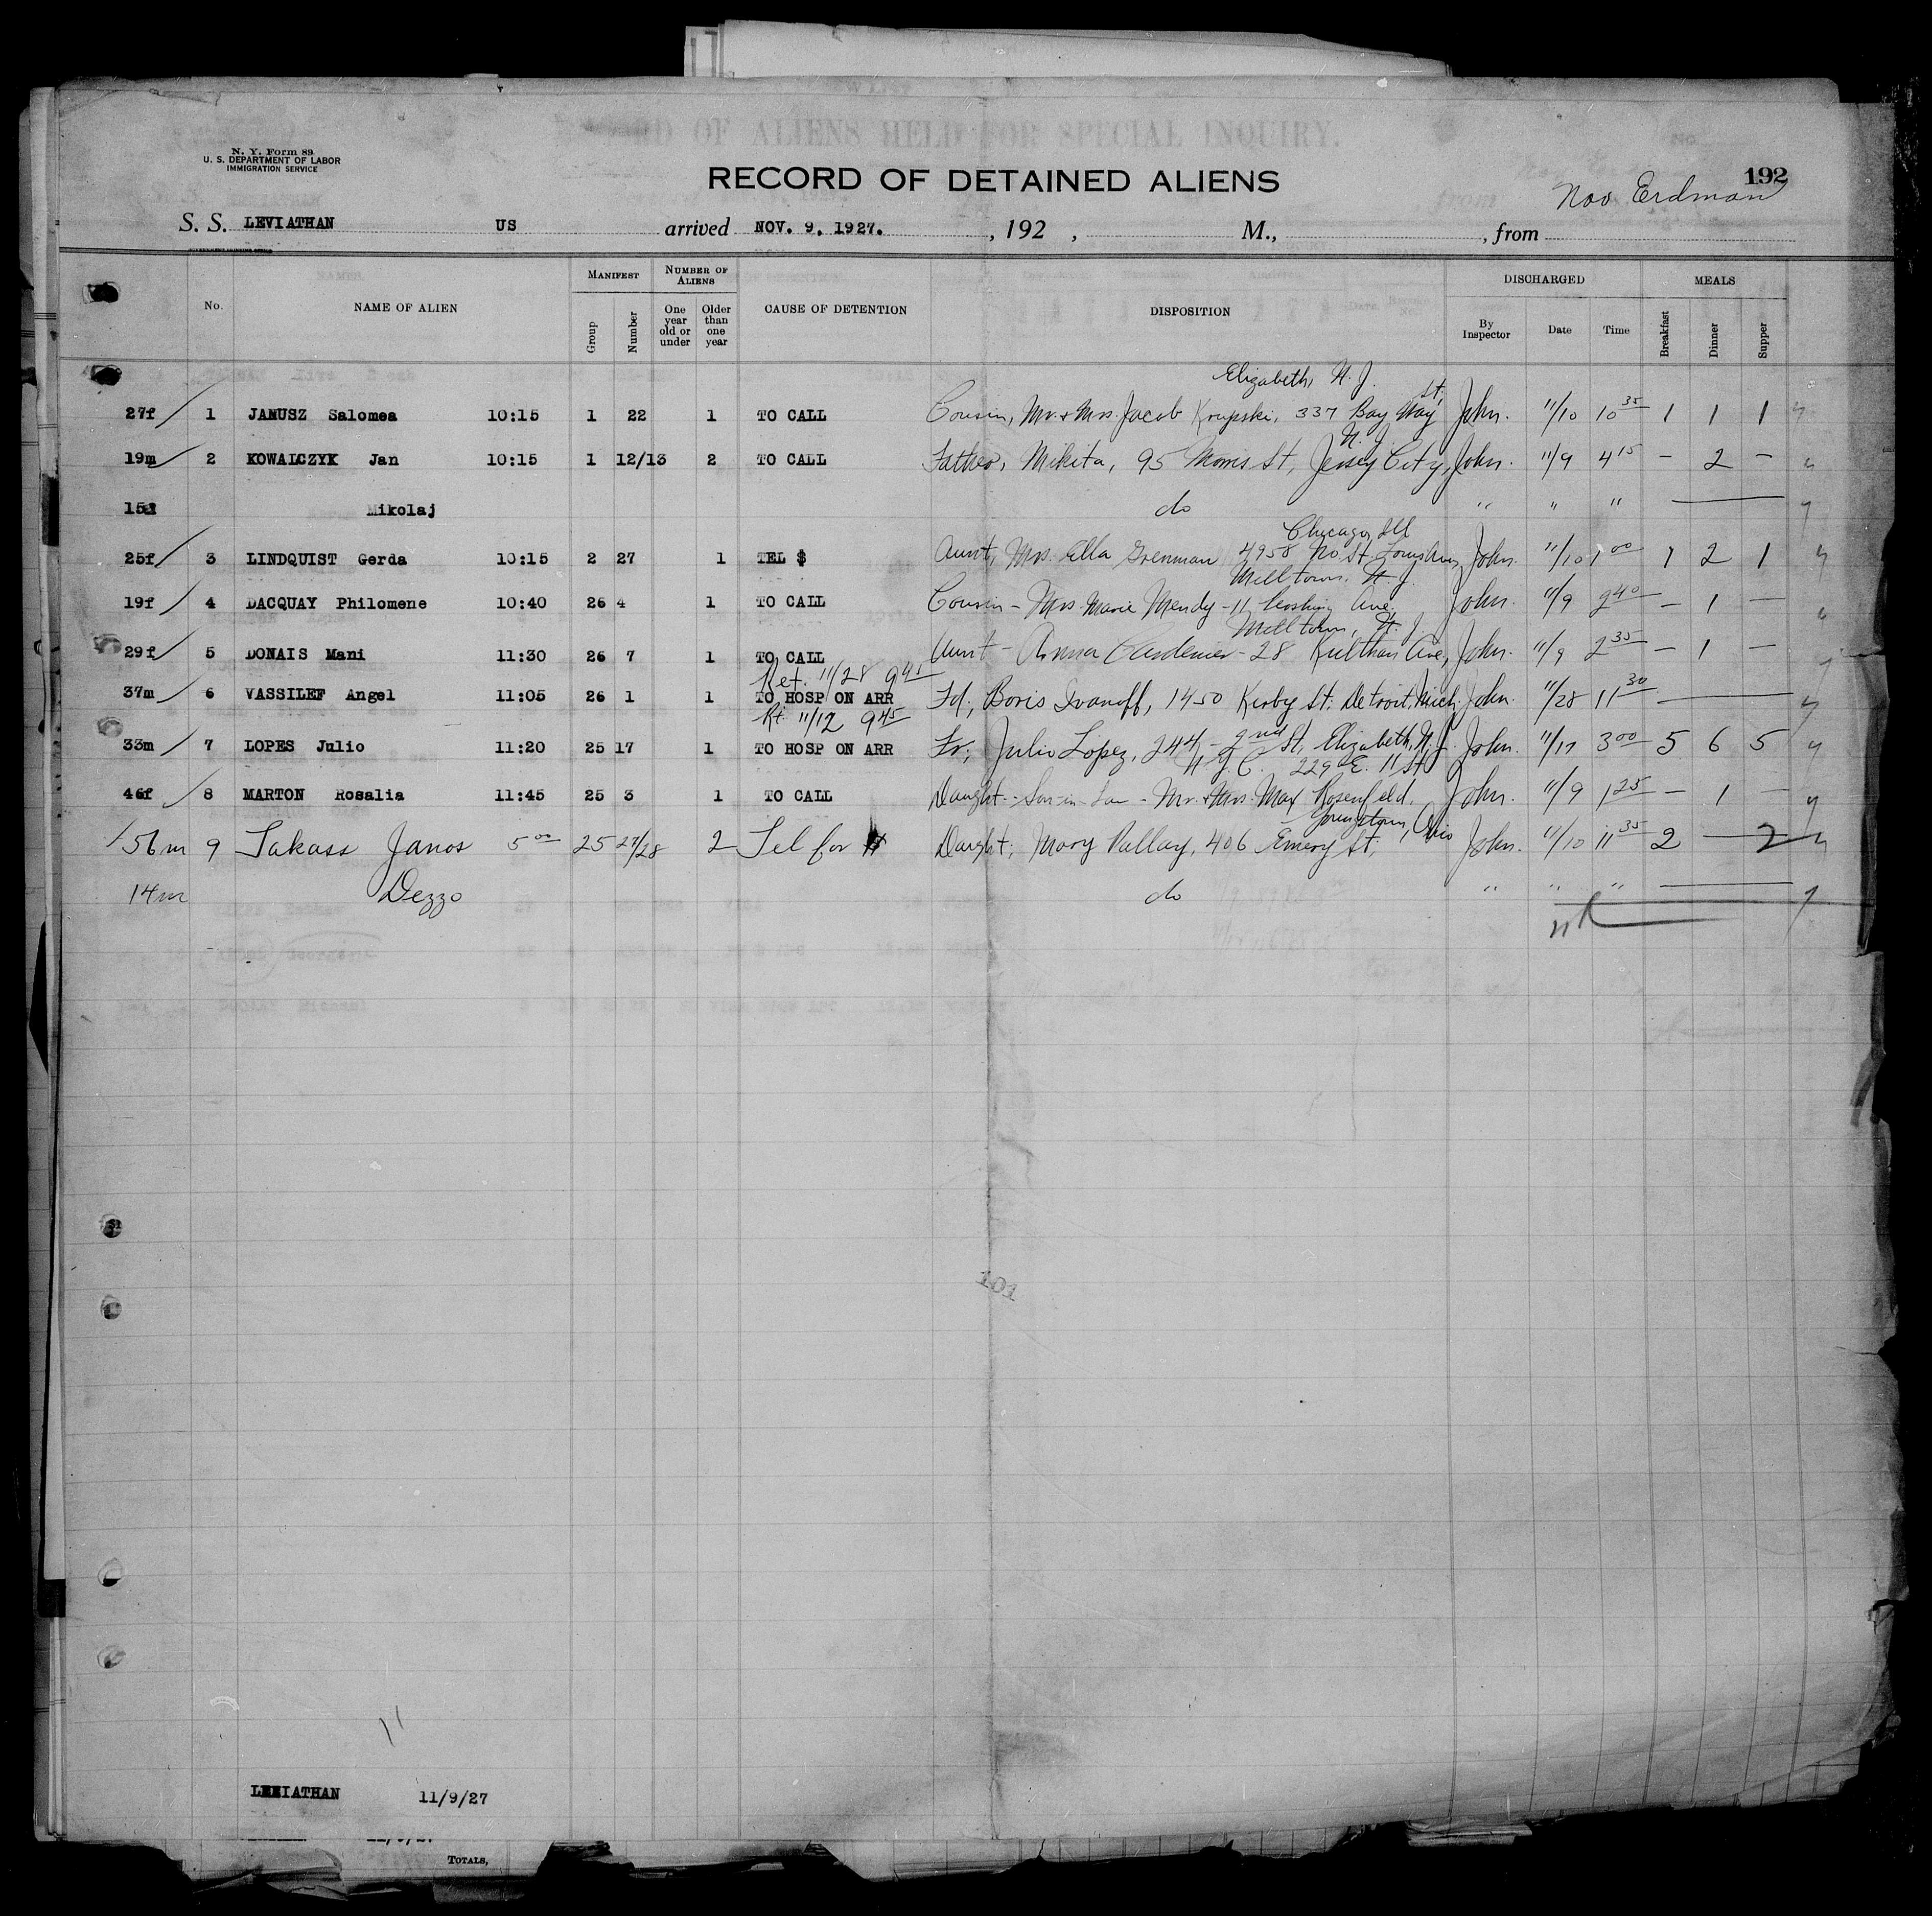 N. Y. Form 89
U. S. DEPARTMENT OF LABOR
IMMIGRATION SERVICE
RECORD OF DETAINED ALIENS
192
Nov Erdman
S. S. LEVIATHAN US arrived NOV. 9, 1927. , 192 , M., , from
No. NAME OF ALIEN MANIFEST Group Number NUMBER OF ALIENS One year old or under Older than one year CAUSE OF DETENTION DISPOSITION DISCHARGED By Inspector Date Time MEALS Breakfast Dinner Supper
Elizabeth, N. J.
27f 1 JANUSZ Salomea 10:15 1 22 1 TO CALL Cousin, Mr. + Mrs. Jacob Krupski, 337 Bay Way St, John. 11/10 10 35 1 1 1
N. J.
19m 2 KOWALCZYK Jan 10:15 1 12/13 2 TO CALL Father, Mikita, 95 Morris St, Jersey City, John. 11/9 4 15 - 2 -
Mikolaj do " " "
Chicago, Ill
25f 3 LINDQUIST Gerda 10:15 2 27 1 TEL $ Aunt, Mrs. Ella Grenman 4958 No. St. Louis John. 11/10 1 00 1 2 1
Milltown, N. J.
19f 4 DACQUAY Philomene 10:40 26 4 1 TO CALL Cousin - Mrs. Marie Mendy - 11 Ave. John. 11/9 2 40 - 1 -
Milltown, N. J.
29f 5 DONAIS Mani 11:30 26 7 1 TO CALL Aunt - Anna - 28 Ave, John. 11/9 2 35 - 1 -
Ret. 11/28 9 45
37m 6 VASSILEF Angel 11:05 26 1 1 TO HOSP ON ARR Fd; Boris Ivanoff, 1450 Kirby St; Detroit, Mich John. 11/28 11 30
Rt. 11/12 9 45
33m 7 LOPES Julio 11:20 25 17 1 TO HOSP ON ARR Fr; Julio Lopez, 244 - 2nd St, Elizabeth, N. J. John. 11/17 3 00 5 6 5
N. Y. C. 229 E. 11 St
46f 8 MARTON Rosalia 11:45 25 3 1 TO CALL Daught - Son-in-Law - Mr. + Mrs. Max Rosenfeld, John. 11/9 1 25 - 1 -
Youngstown, Ohio
56m 9 Takass Janos 5 00 25 27/28 2 Tel for $ Daught; Mary Pallay, 406 Emery St; John. 11/10 11 35 2 - 2
14m Dezzo do " " "
101
LEVIATHAN 11/9/27
TOTALS,